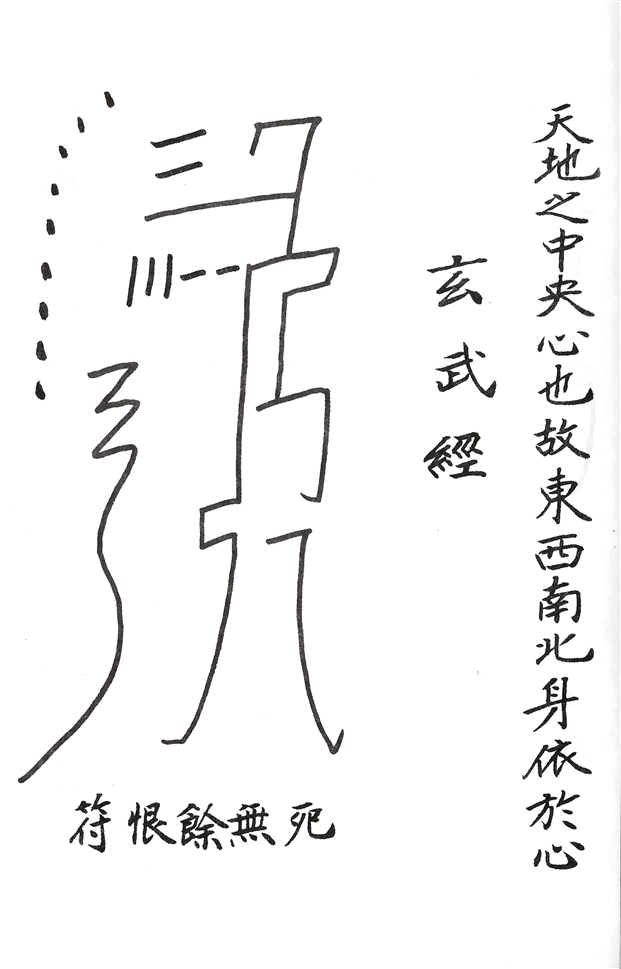 天地之中央心也故東西南北身依於心
玄武經
死無餘恨符